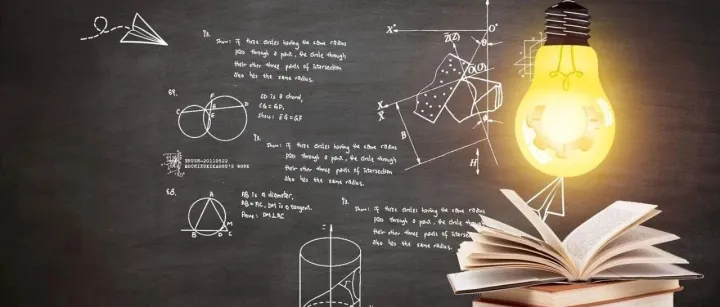 Show: if three circles having the same radius
pass through a point, the circle through
their other three points of intersection
also has the same radius.
69.
CD is a chord,
CG = GD,
Show: EG = GF
Show: if three circles having the same radius
pass through a point, the circle through
their other three points of intersection
also has the same radius.
68.
AB is a diameter,
AB = AC, DM is a tangent.
Prove: DM⊥AC
Show: if three circles having the same radius
pass through a point, the circle through
their other three points of intersection
also has the same radius.
X
O
θ
X
B
H
C
F
D
E
A
B
D
C
M